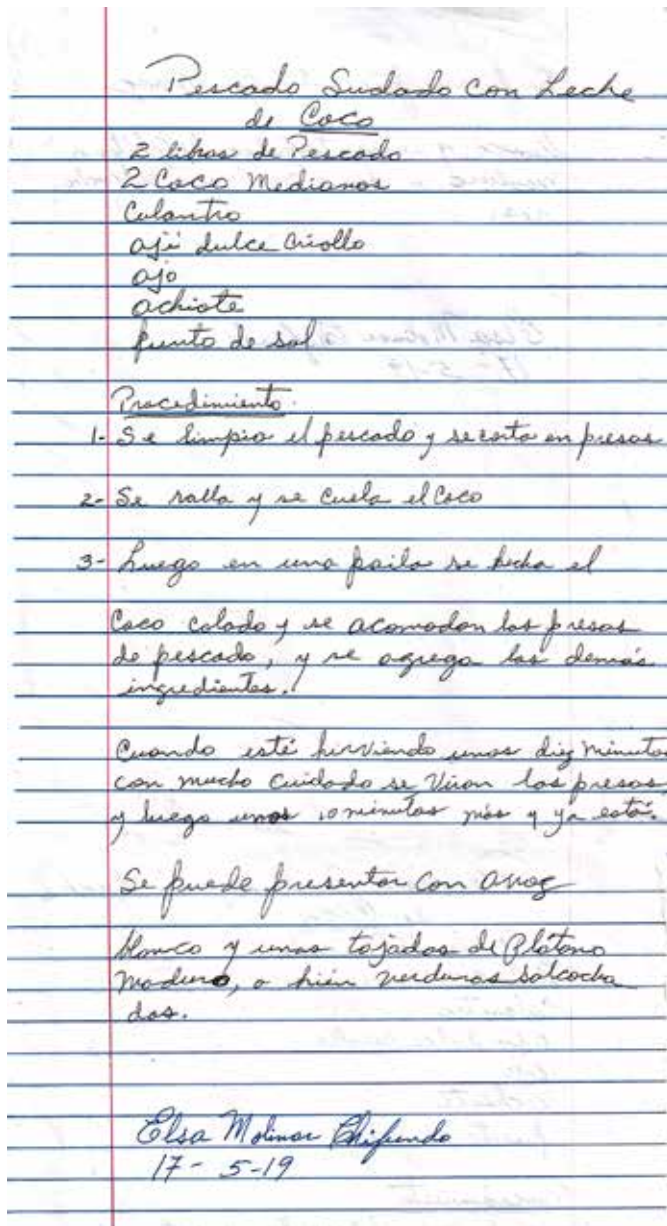 Pescado Sudado con Leche
de Coco
2 libras de Pescado
2 Coco Medianos
Culantro
ají dulce criollo
ajo
achiote
punto de sal
Procedimiento.
1- Se limpia el pescado y se corta en presas
2- Se ralla y se cuela el Coco
3- Luego en una paila se hecha el
Coco colado y se acomodan las presas
de pescado, y se agrega las demás
ingredientes.
Cuando esté hirviendo unos diez minutos
con mucho cuidado se viran las presas,
y luego unos 10 minutos más y ya está.
Se puede presentar con arroz
blanco y unas tajadas de Plátano
maduro, o bién verduras salcocha
das.
Elsa Molinar
17- 5-19